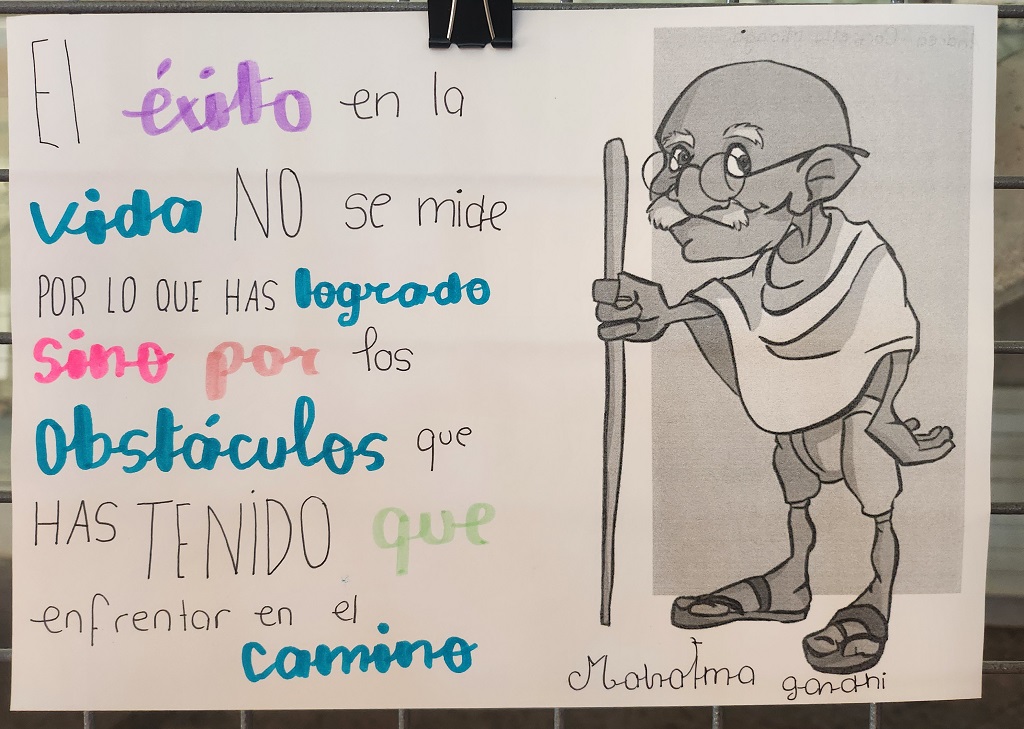 El éxito en la
vida NO se mide
POR LO QUE HAS logrado
sino por los
Obstáculos que
HAS TENIDO que
enfrentar en el
camino
Mahatma gandhi